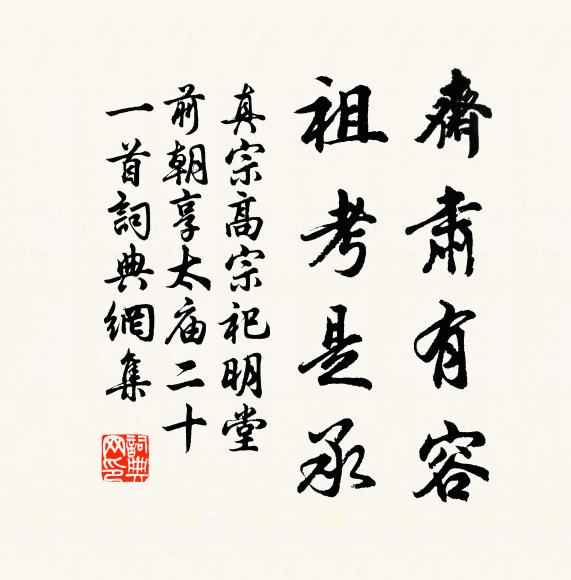 齋肅有容
祖考是承
真宗高宗祀明堂
前朝享太庙二十
一首詞典網集
詞典
网印